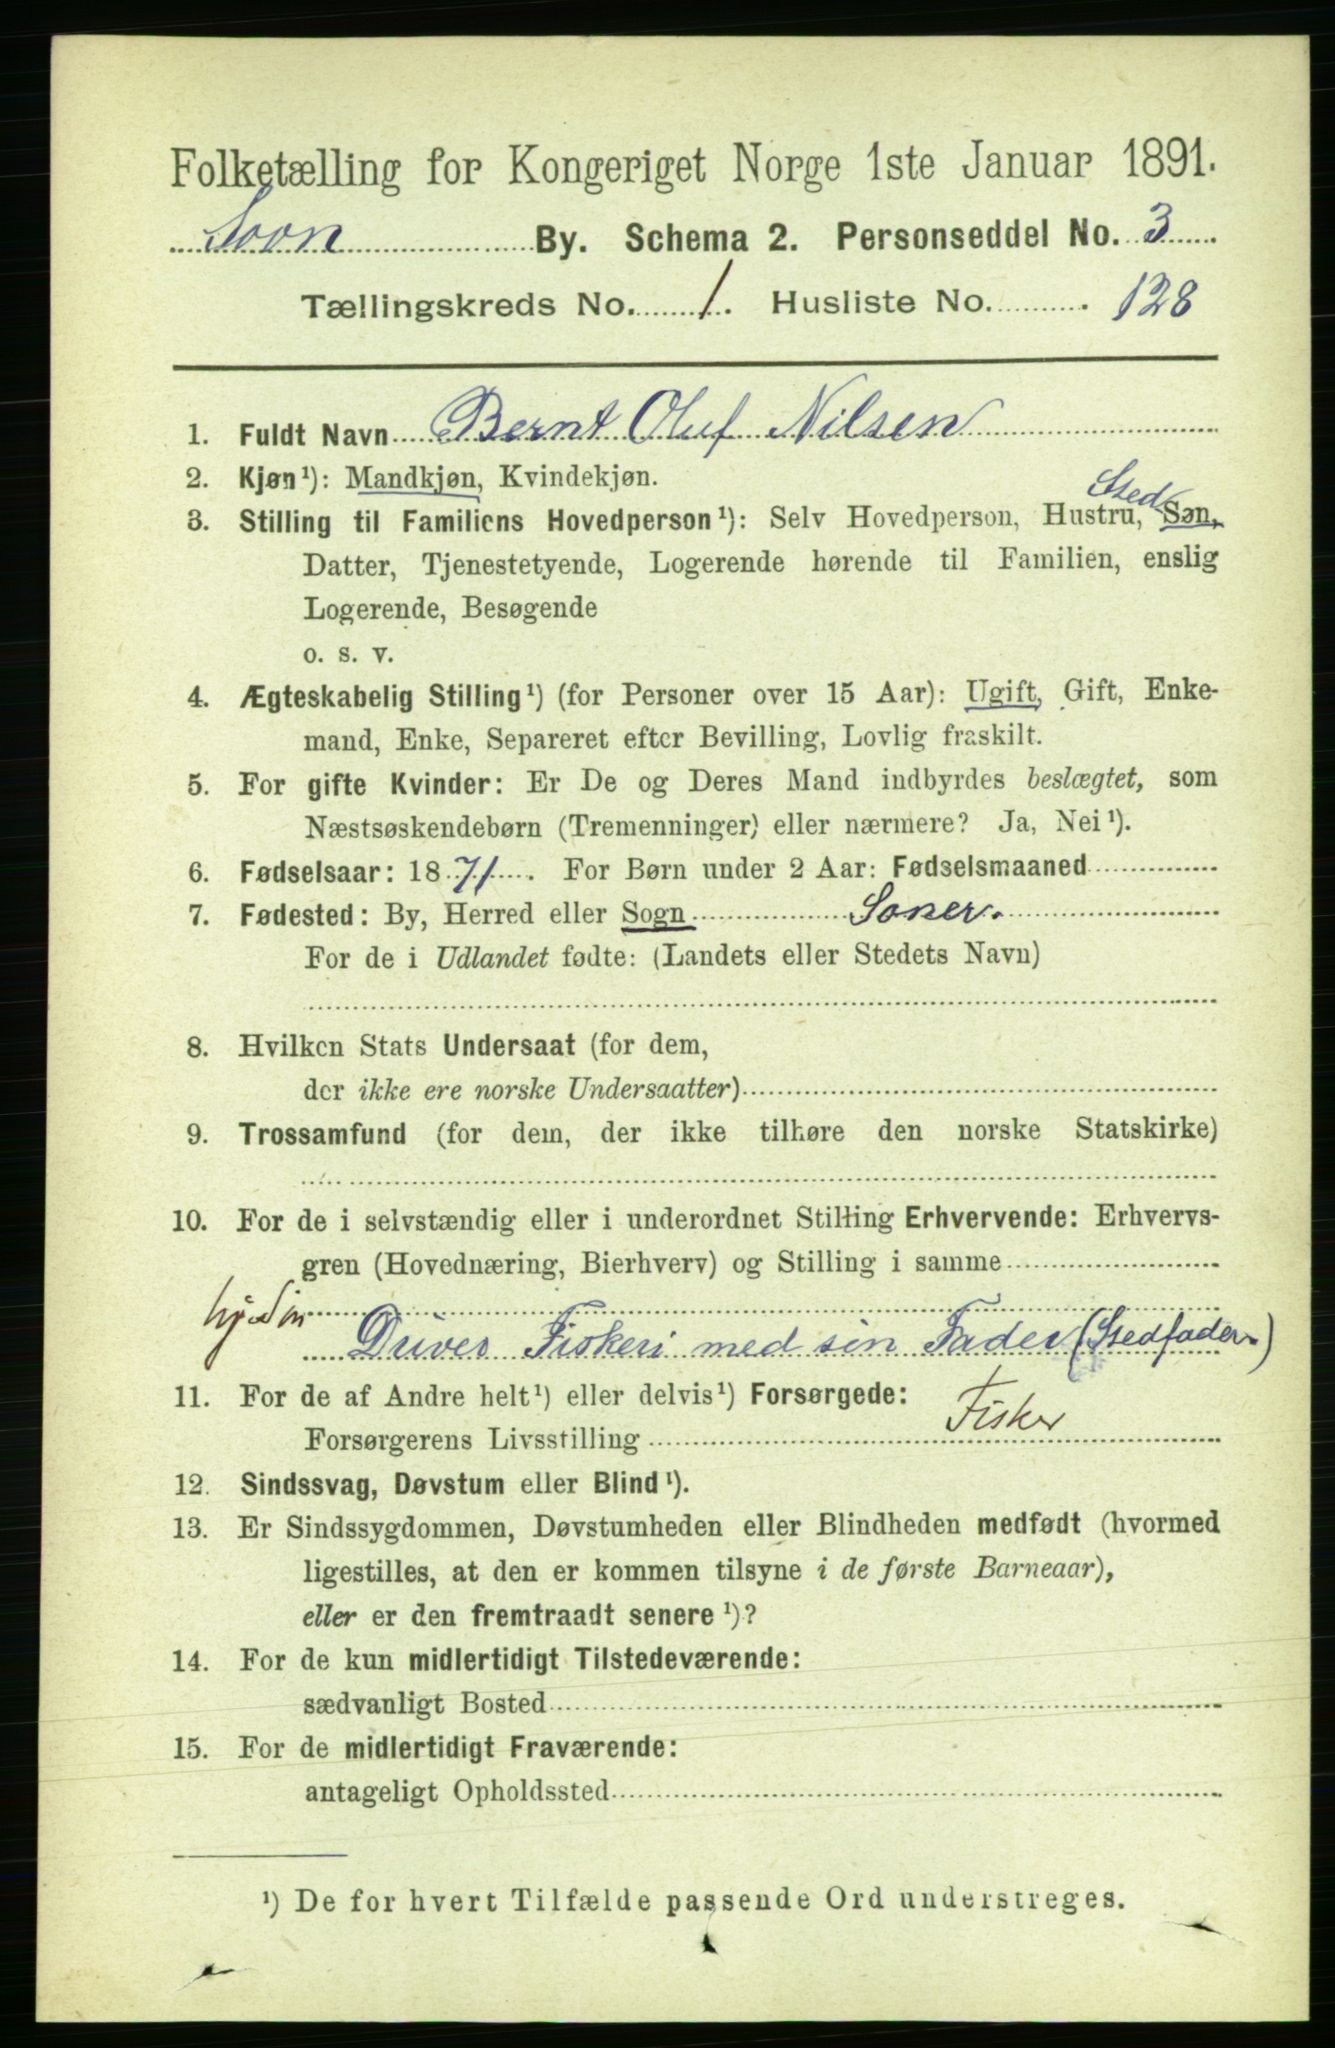 Folketælling for Kongeriget Norge 1ste Januar 1891.
Soon By. Schema 2. Personseddel No. 3
Tællingskreds No. 1. Husliste No. 128
1. Fuldt Navn Bernt Oluf Nilsen
2. Kjøn¹): Mandkjøn, Kvindekjøn.
Sted
3. Stilling til Familiens Hovedperson¹): Selv Hovedperson, Hustru, Søn,
Datter, Tjenestetyende, Logerende hørende til Familien, enslig
Logerende, Besøgende
o. s. v.
4. Ægteskabelig Stilling¹) (for Personer over 15 Aar): Ugift, Gift, Enke-
mand, Enke, Separeret efter Bevilling, Lovlig fraskilt.
5. For gifte Kvinder: Er De og Deres Mand indbyrdes beslægtet, som
Næstsøskendebørn (Tremenninger) eller nærmere? Ja, Nei¹).
6. Fødselsaar: 1871. For Børn under 2 Aar: Fødselsmaaned
7. Fødested: By, Herred eller Sogn Soner.
For de i Udlandet fødte: (Landets eller Stedets Navn)
8. Hvilken Stats Undersaat (for dem,
der ikke ere norske Undersaatter)
9. Trossamfund (for dem, der ikke tilhøre den norske Statskirke)
10. For de i selvstændig eller i underordnet Stilling Erhvervende: Erhvervs-
gren (Hovednæring, Bierhverv) og Stilling i samme
Driver Fiskeri med sin Fader (Stedfader.)
11. For de af Andre helt¹) eller delvis¹) Forsørgede:
Forsørgerens Livsstilling Fisker
12. Sindssvag, Døvstum eller Blind¹).
13. Er Sindssygdommen, Døvstumheden eller Blindheden medfødt (hvormed
ligestilles, at den er kommen tilsyne i de første Barneaar),
eller er den fremtraadt senere¹)?
14. For de kun midlertidigt Tilstedeværende:
sædvanligt Bosted
15. For de midlertidigt Fraværende:
antageligt Opholdssted
¹) De for hvert Tilfælde passende Ord understreges.